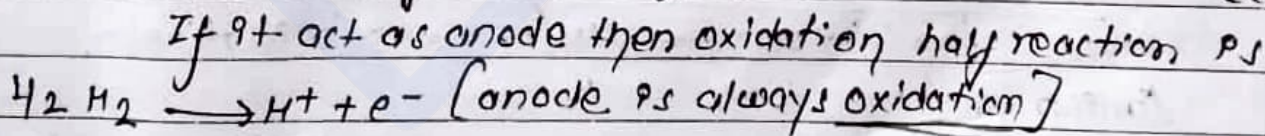 If it act as anode then oxidation half reaction is
1/2 H2 ⟶ H+ + e- [anode is always oxidation]